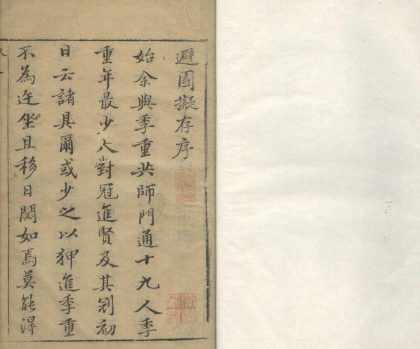 避園擬存序
始余與季重共師門通十九人季
重年最少大對冠進賢及其釗初
日云諸具爾或少之以狎進季重
不為迕坐且移日閱如焉莫能得